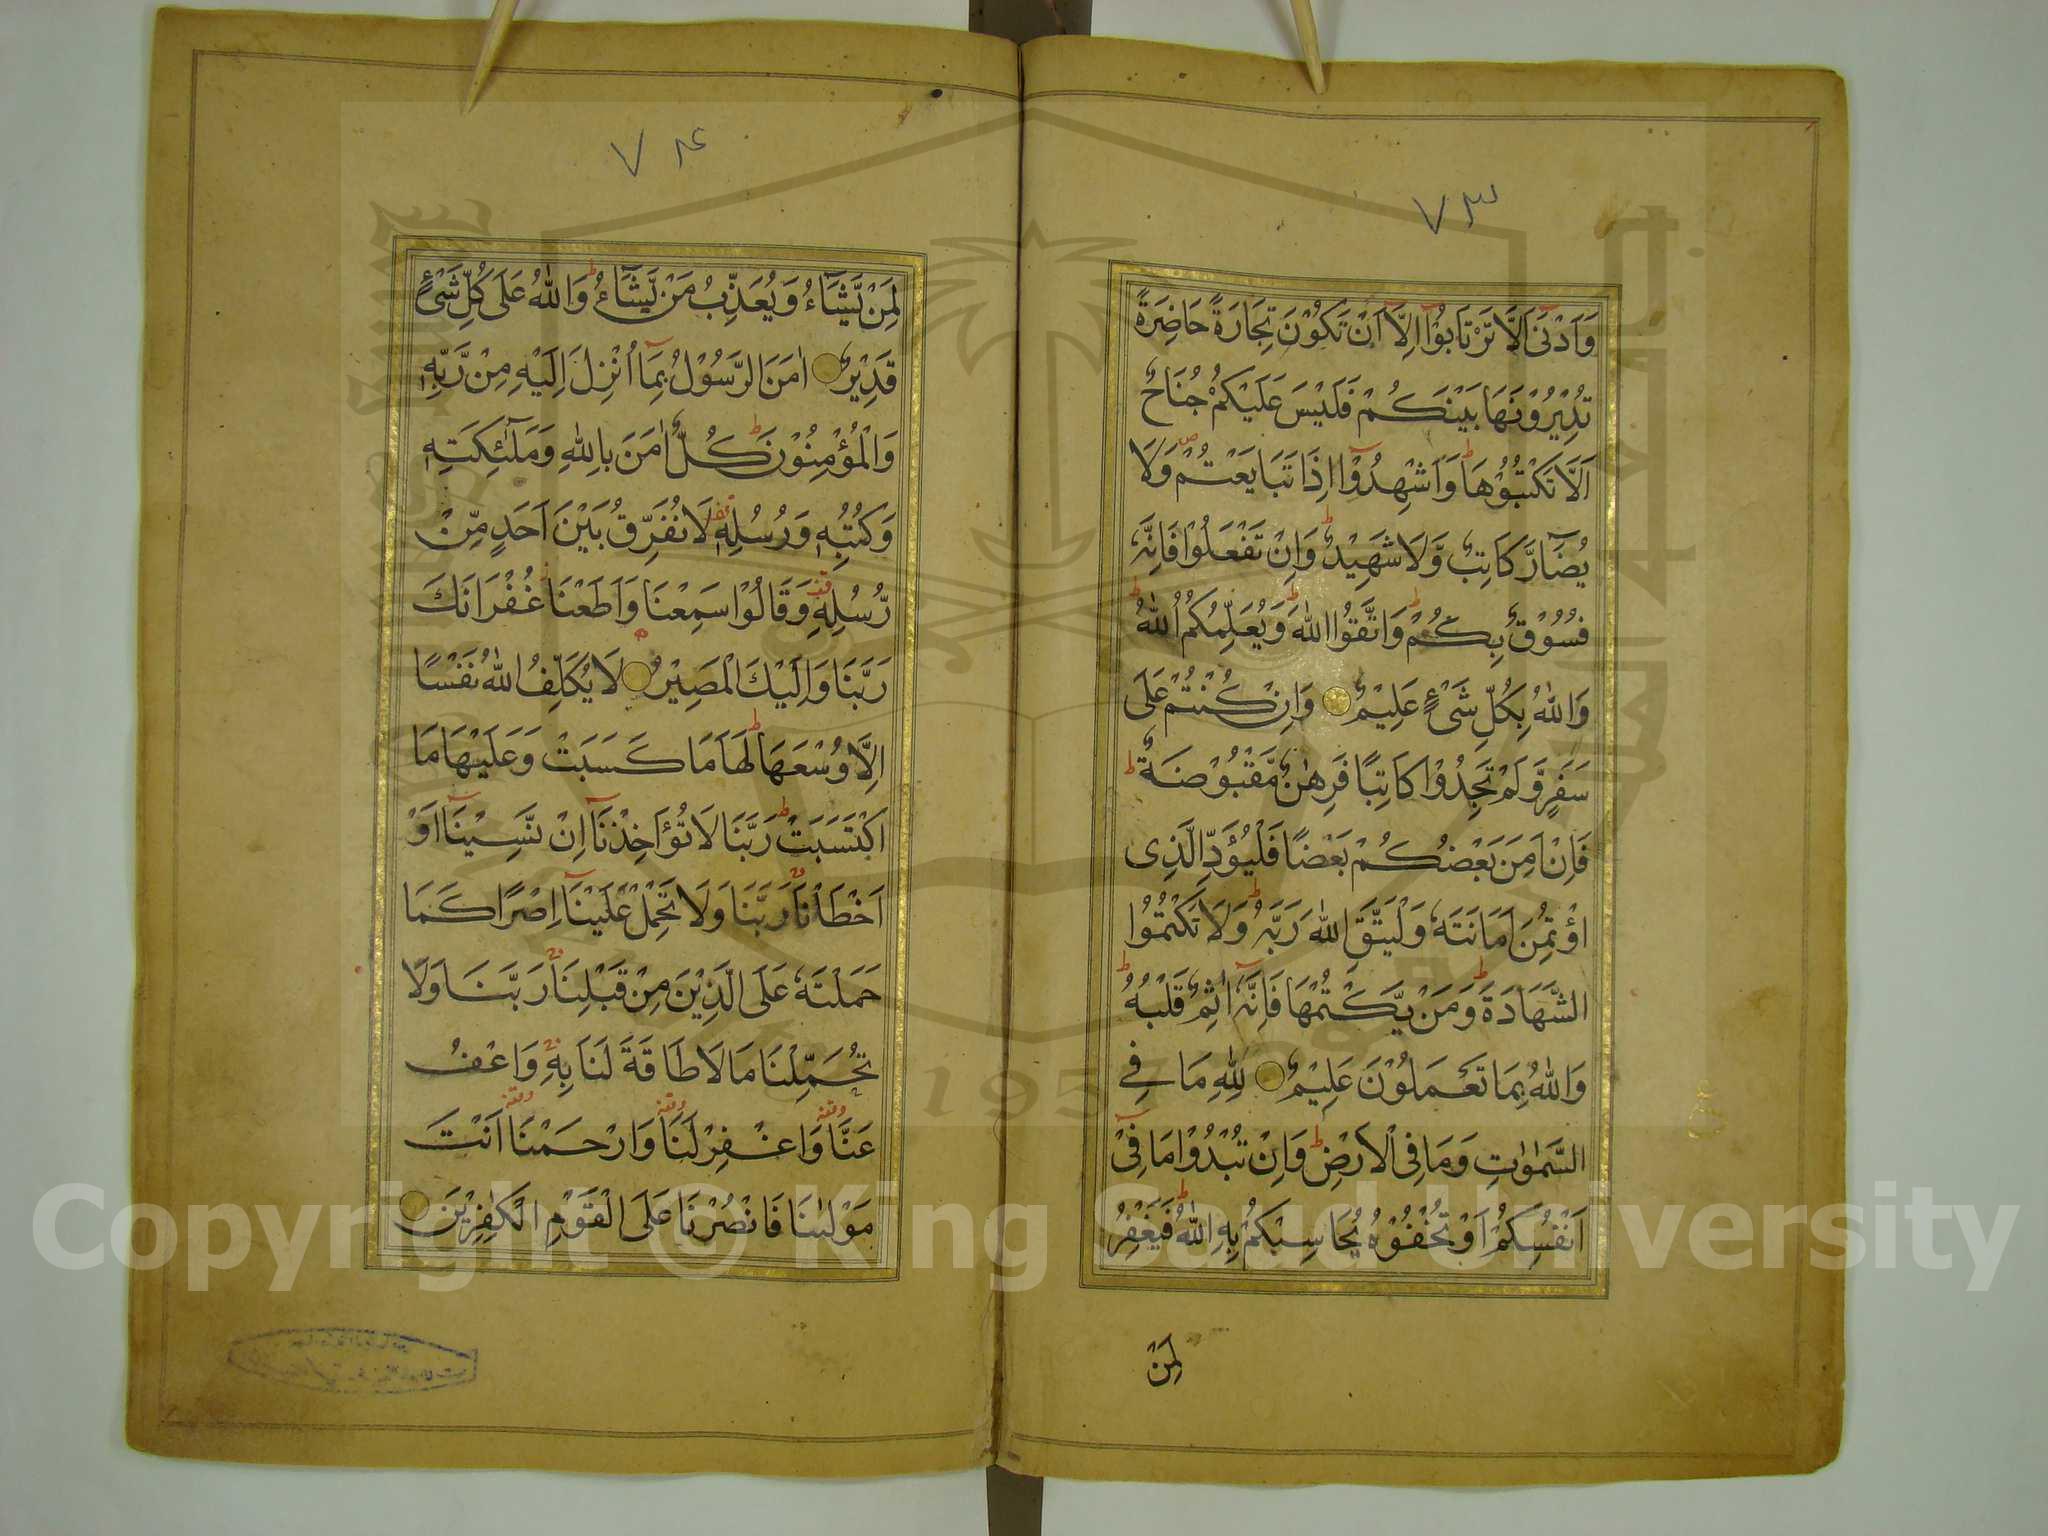 ٧٣
وَاَدْنٰى اَلَّا تَرْتَابُوْٓا اِلَّآ اَنْ تَكُوْنَ تِجَارَةً حَاضِرَةً
تُدِيْرُوْنَهَا بَيْنَكُمْ فَلَيْسَ عَلَيْكُمْ جُنَاحٌ
اَلَّا تَكْتُبُوْهَا ط وَاَشْهِدُوْٓا اِذَا تَبَايَعْتُمْ ص وَلَا
يُضَآرَّ كَاتِبٌ وَّلَا شَهِيْدٌ ط وَاِنْ تَفْعَلُوْا فَاِنَّهٗ
فُسُوْقٌ بِكُمْ ط وَاتَّقُوا اللّٰهَ ط وَيُعَلِّمُكُمُ اللّٰهُ ط
وَاللّٰهُ بِكُلِّ شَىْءٍ عَلِيْمٌ وَاِنْ كُنْتُمْ عَلٰى
سَفَرٍ وَّلَمْ تَجِدُوْا كَاتِبًا فَرِهٰنٌ مَّقْبُوْضَةٌ ط
فَاِنْ اَمِنَ بَعْضُكُمْ بَعْضًا فَلْيُؤَدِّ الَّذِى
اؤْتُمِنَ اَمَانَتَهٗ وَلْيَتَّقِ اللّٰهَ رَبَّهٗ ط وَلَا تَكْتُمُوا
الشَّهَادَةَ ط وَمَنْ يَّكْتُمْهَا فَاِنَّهٗٓ اٰثِمٌ قَلْبُهٗ ط
وَاللّٰهُ بِمَا تَعْمَلُوْنَ عَلِيْمٌ لِلّٰهِ مَا فِى
السَّمٰوٰتِ وَمَا فِى الْاَرْضِ ط وَاِنْ تُبْدُوْا مَا فِىْٓ
اَنْفُسِكُمْ اَوْ تُخْفُوْهُ يُحَاسِبْكُمْ بِهِ اللّٰهُ ط فَيَغْفِرُ
لِمَنْ
٧٤
لِمَنْ يَّشَآءُ وَيُعَذِّبُ مَنْ يَّشَآءُ ط وَاللّٰهُ عَلٰى كُلِّ شَىْءٍ
قَدِيْرٌ اٰمَنَ الرَّسُوْلُ بِمَآ اُنْزِلَ اِلَيْهِ مِنْ رَّبِّهٖ
وَالْمُؤْمِنُوْنَ ط كُلٌّ اٰمَنَ بِاللّٰهِ وَمَلٰٓئِكَتِهٖ
وَكُتُبِهٖ وَرُسُلِهٖ قف لَا نُفَرِّقُ بَيْنَ اَحَدٍ مِّنْ
رُّسُلِهٖ قف وَقَالُوْا سَمِعْنَا وَاَطَعْنَا ز غُفْرَانَكَ
رَبَّنَا وَاِلَيْكَ الْمَصِيْرُ لَا يُكَلِّفُ اللّٰهُ نَفْسًا
اِلَّا وُسْعَهَا ط لَهَا مَا كَسَبَتْ وَعَلَيْهَا مَا
اكْتَسَبَتْ ط رَبَّنَا لَا تُؤَاخِذْنَآ اِنْ نَّسِيْنَآ اَوْ
اَخْطَاْنَا رَبَّنَا وَلَا تَحْمِلْ عَلَيْنَآ اِصْرًا كَمَا
حَمَلْتَهٗ عَلَى الَّذِيْنَ مِنْ قَبْلِنَا رَبَّنَا وَلَا
تُحَمِّلْنَا مَا لَا طَاقَةَ لَنَا بِهٖ وَاعْفُ
عَنَّا وقفه وَاغْفِرْ لَنَا وقفه وَارْحَمْنَا وقفه اَنْتَ
مَوْلٰىنَا فَانْصُرْنَا عَلَى الْقَوْمِ الْكٰفِرِيْنَ
1957
Copyright © King Saud University